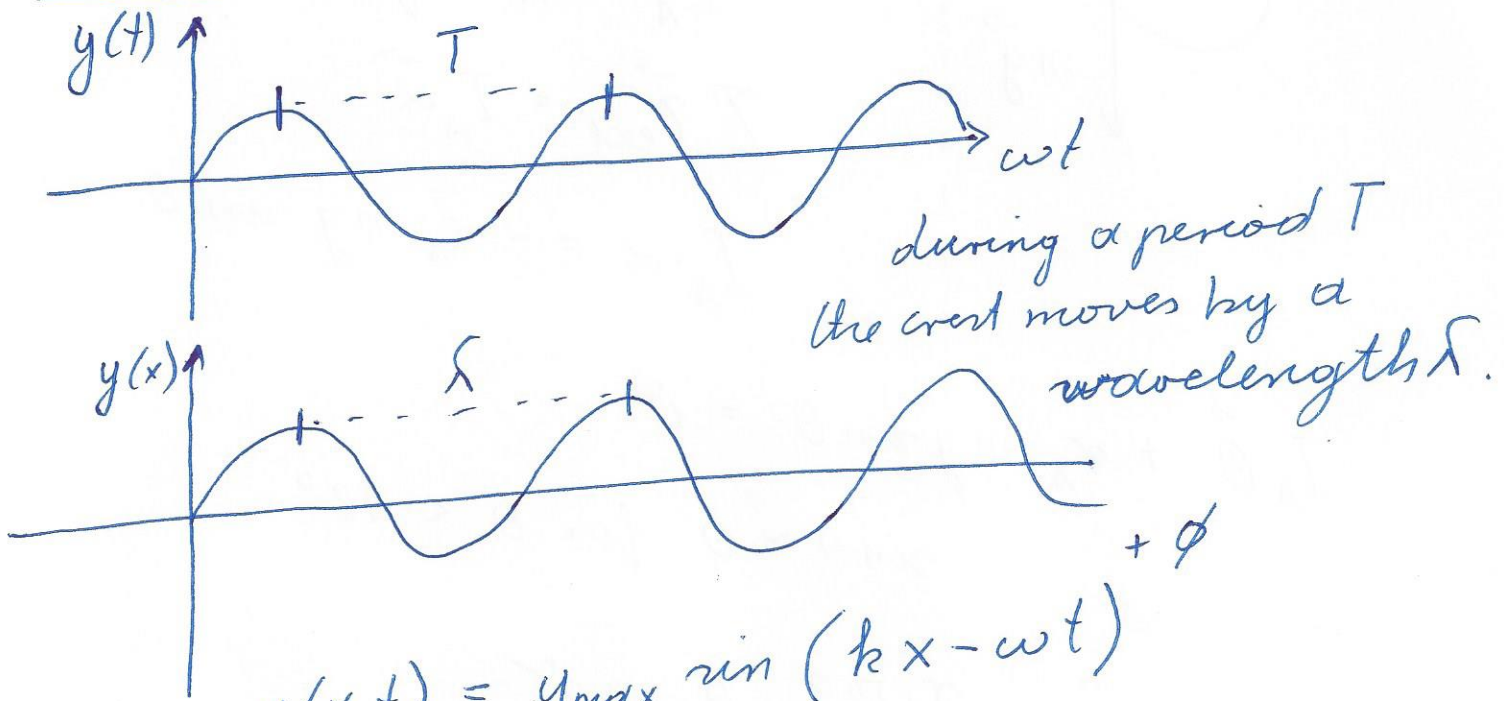 y(t)
T
ωt
during a period T
the crest moves by a
wavelength λ.
y(x)
λ
+ φ
y(x,t) = ymax sin (kx - ωt)